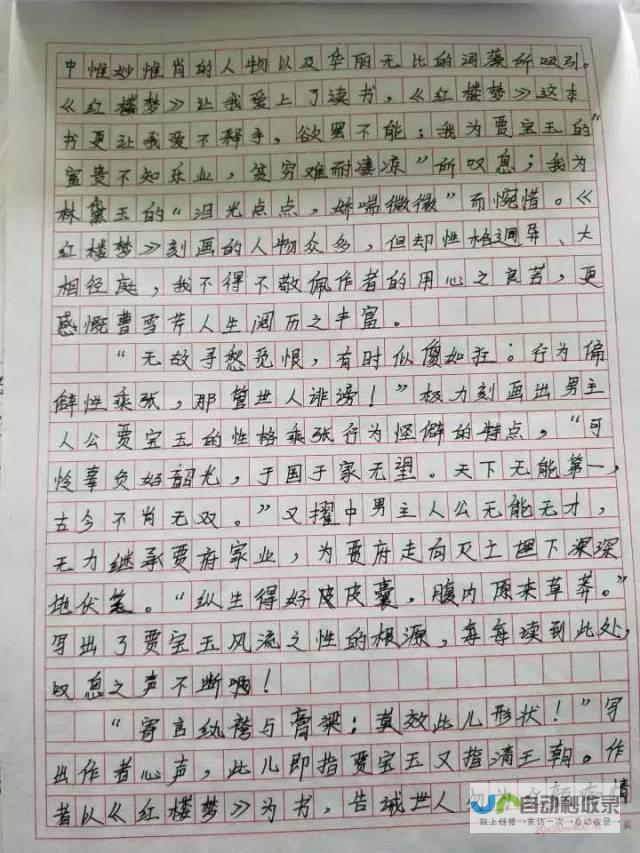 中惟妙惟肖的人物以及华丽无比的词藻所吸引。
《红楼梦》让我爱上了读书，《红楼梦》这本
书更让我爱不释手，欲罢不能；我为贾宝玉的“
富贵不知乐业，贫穷难耐凄凉”所叹息；我为
林黛玉的“泪光点点，娇喘微微”而惋惜。《
红楼梦》刻画的人物众多，但却性格迥异、大
相径庭，我不得不敬佩作者的用心之良苦，更
感慨曹雪芹人生阅历之丰富。
“无故寻愁觅恨，有时似傻如狂；行为偏
僻性乖张，那管世人诽谤！”极力刻画出男主
人公贾宝玉的性格乖张行为怪僻的特点，“可
怜辜负好韶光，于国于家无望。天下无能第一，
古今不肖无双。”又擢中男主人公无能无才，
无力继承贾府家业，为贾府走向灭亡埋下深深
地伏笔。“纵生得好皮皮囊，腹内原来草莽。”
写出了贾宝玉风流之性的根源，每每读到此处，
叹息之声不断啊！
“寄言纨袴与膏粱：莫效此儿形状！”写
出作者心声，此儿即指贾宝玉又指清王朝。作
者以《红楼梦》为书，告诫世人
情
自动秒收录
做上链接·来访一次·自动收录
20×20=400